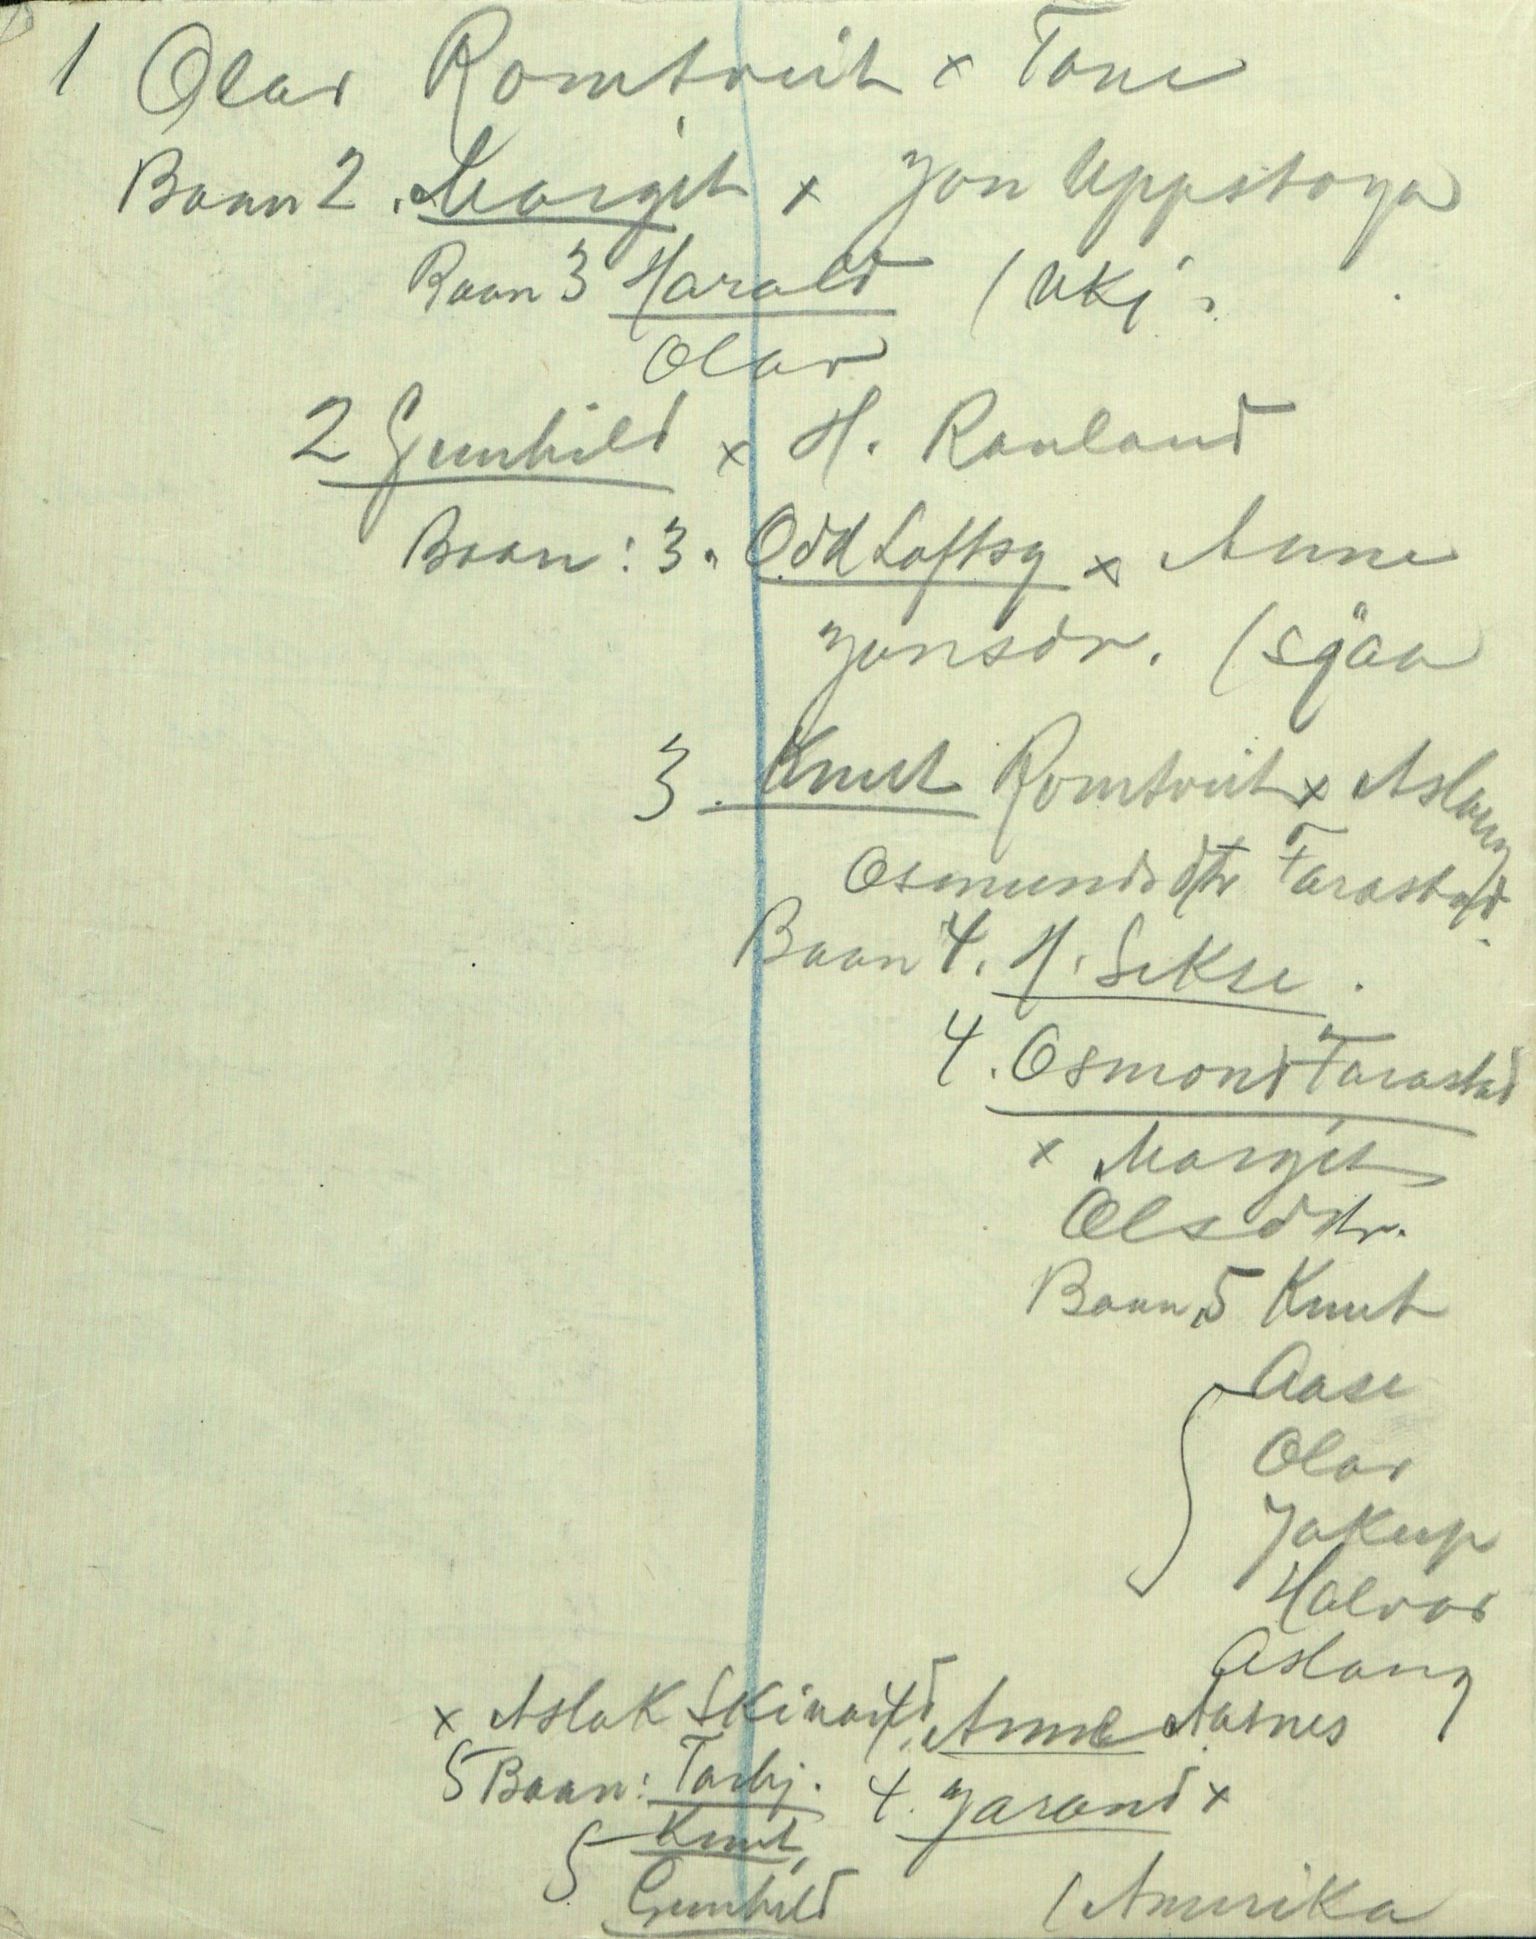 1 Olav Romtveit x Tone
Baan 2. Margit x Jon Uppstoga
Baan 3 Harald (ukj.
Olav
2 Gunhild x H. Rauland
Baan: 3. Odd Loftsg x Anne
Jonsdr. (sjaa
3. Knut Romtveit x Aslaug
Osmundsdtr Farastad.
Baan 4. H. Sekse.
4. Osmond Farastad
x Margit
Olsdtr.
Baan 5 Knut
Aase
Olav
Jakup
Halvor
Aslaug
x Aslak 4. Anne Aasnes
5 Baan: Torbj. 4. Jarand x
5 Knut,
Gunhild (Amerika